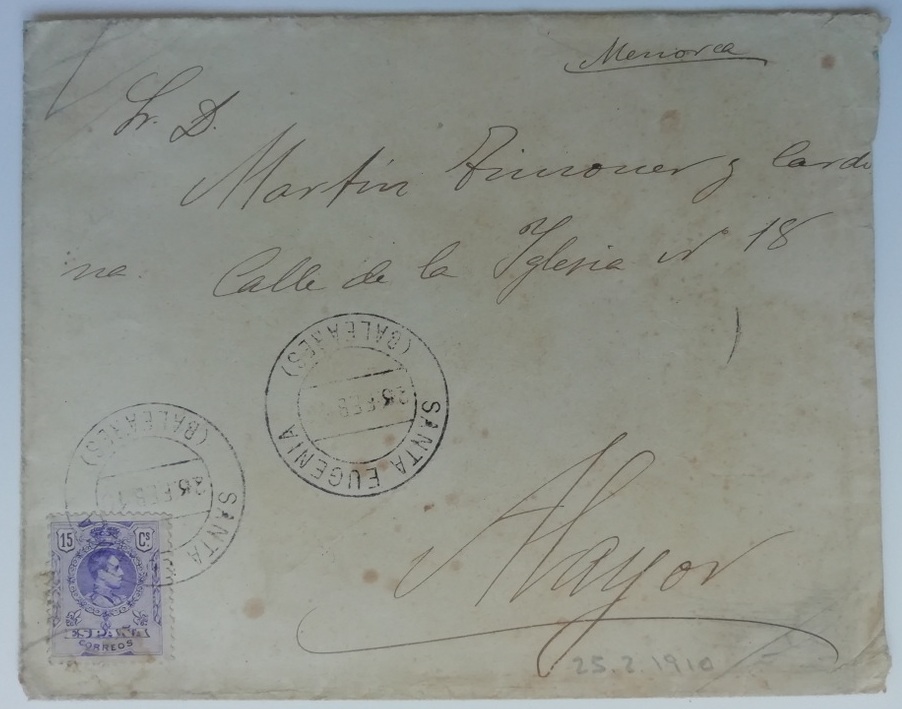 Menorca
Sr. D.
Martin Timoner y Cardo
na. Calle de la Iglesia nº 18
(BALEARES)
25.FEB.
SANTA EUGENIA
(BALEARES)
25.FEB.1
SANTA
15 Cs
ESPAÑA
CORREOS
Alayor
25.2.1910